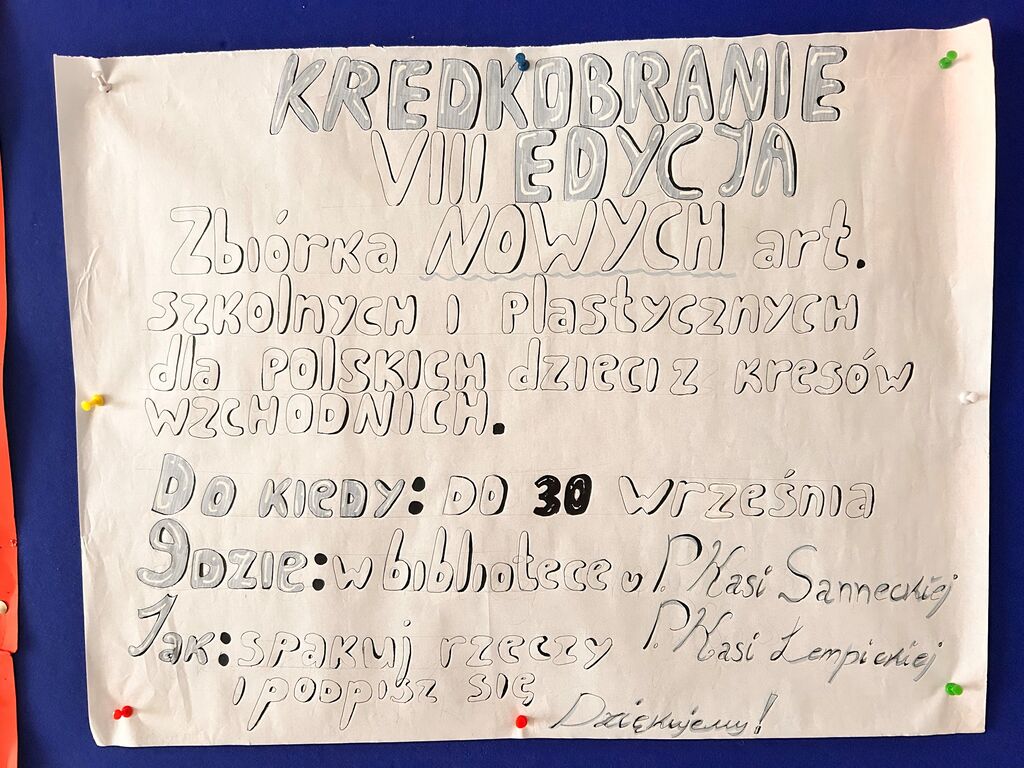 KREDKOBRANIE
VIII EDYCJA
Zbiórka NOWYCH art.
szkolnych i plastycznych
dla POLSKICH dzieci z kresów
WZCHODNICH.
Do kiedy: DO 30 września
gdzie: w bibliotece u P. Kasi Sanneckiej
P. Kasi Łempickiej
Jak: spakuj rzeczy
i podpisz się
Dziękujemy!